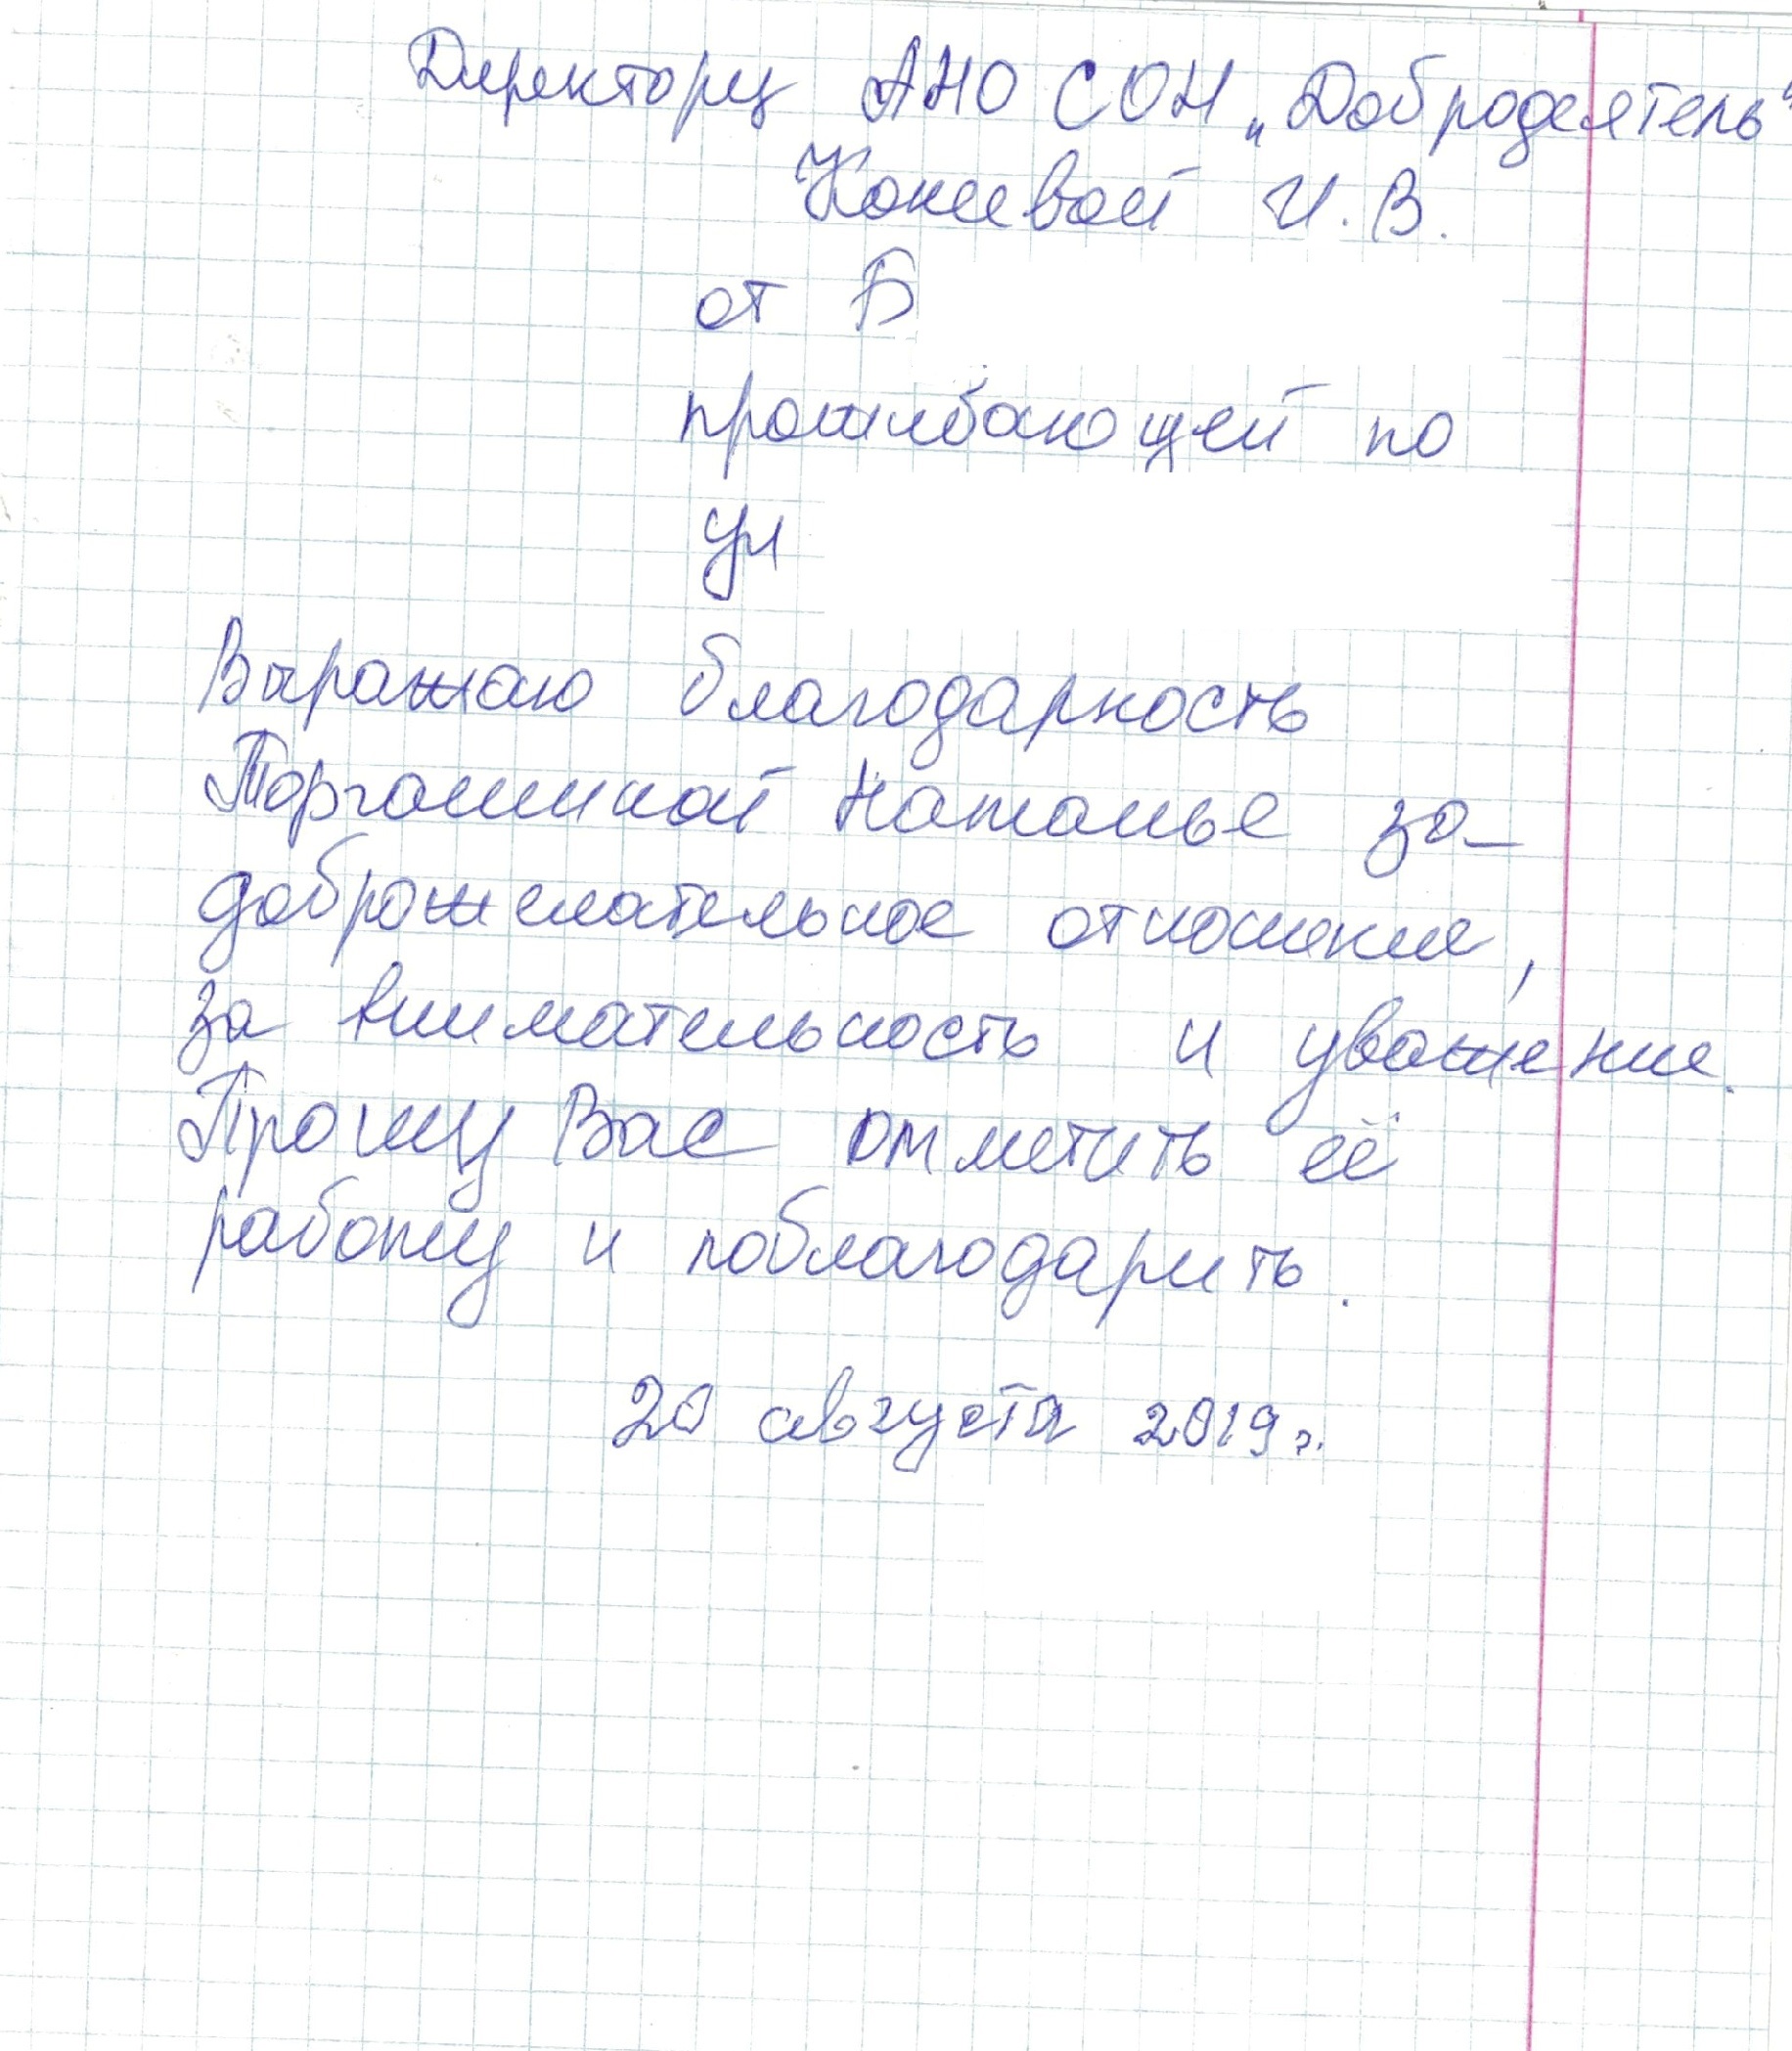 Директору АНО СОН „Добродеятель"
Конеевой И.В.
от Б
проживающей по
ул
Выражаю благодарность
Торгашиной Наталье за
доброжелательное отношение,
за внимательность и уважение.
Прошу Вас отметить её
работу и поблагодарить.
20 августа 2019 г.